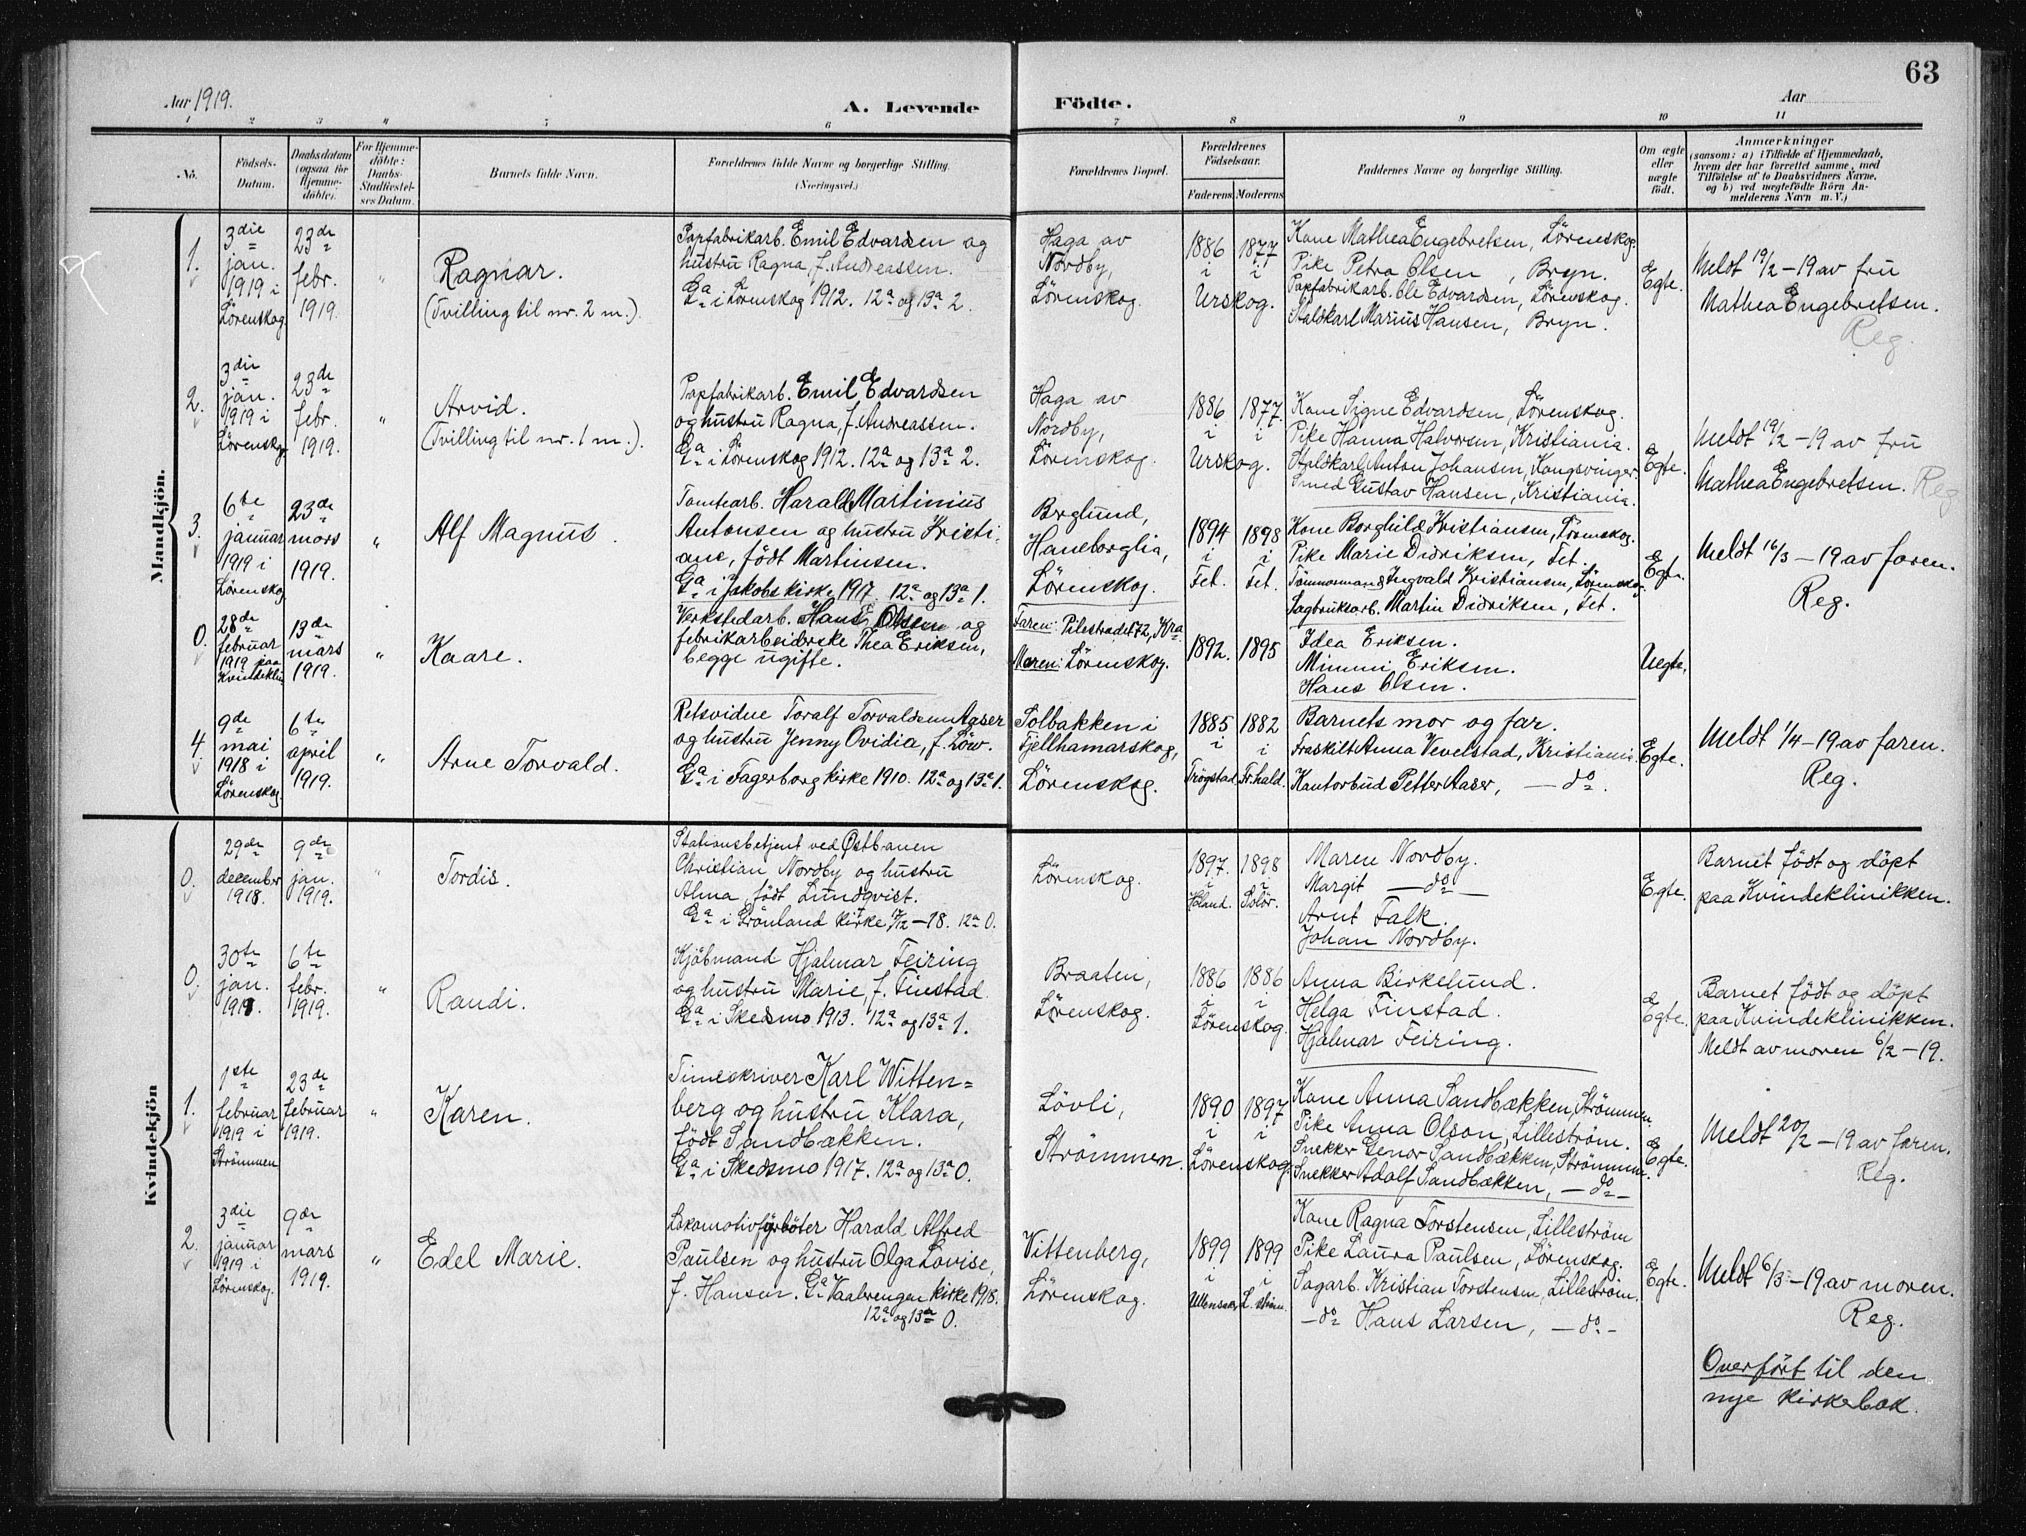 63
Aar 1919.
A. Levende Födte.
Aar
1 2 3 4 5 6 7 8 9 10 11
No.
Födsels-
Datum.
Daabsdatum
(ogsaa for
Hjemme-
döbte).
For Hjemme-
döbte:
Daabs-
Stadfæstel-
ses Datum.
Barnets fulde Navn.
Forældrenes fulde Navne og borgerlige Stilling.
(Næringsvei.)
Forældrenes Bopæl.
Forældrenes
Födselsaar.
Faderens Moderens
Faddernes Navne og borgerlige Stilling.
Om ægte
eller
uægte
født.
Anmærkninger
(saasom: a) i Tilfælde af Hjemmedaab,
hvem der har forrettet samme, med
Tilföielse af to Daabsvidners Navne,
og b) ved uægtefödte Börn An-
melderens Navn m. V.)
Mandkjön.
1.
3die
jan.
1919 i
Lörenskog.
23de
febr.
1919.
"
Ragnar.
(Tvilling til nr. 2 m.).
Papfabrikarb. Emil Edvardsen og
hustru Ragna, f. Andreassen.
Ga i Lörenskog 1912. 12a og 13a 2.
Haga av
Nordby,
Lörenskog.
1886 1877
i i
Urskog.
Kone Mathea Engebretsen, Lörenskog.
Pike Petra Olsen, Bryn.
Papfabrikarb. Ole Edvardsen, Lörenskog.
Staldkarl Marius Hansen, Bryn.
Egte.
Meldt 19/2 – 19 av fru
Mathea Engebretsen.
Reg.
2.
3die
jan.
1919 i
Lörenskog
23de
febr.
1919.
"
Arvid.
(Tvilling til nr. 1 m.).
Papfabrikarb. Emil Edvardsen
og hustru Ragna, f. Andreassen.
Ga i Lörenskog 1912. 12a og 13a 2.
Haga av
Nordby,
Lörenskog.
1886 1877.
i i
Urskog.
Kone Signe Edvardsen, Lörenskog.
Pike Hanna Halvorsen, Kristiania.
Staldkarl Anton Johansen, Kongsvinger
Smed Gustav Hansen, Kristiania.
Egte.
Meldt 19/2 – 19 av fru
Mathea Engebretsen. Reg
3.
6te
januar
1919 i
Lörenskog
23de
mars
1919.
"
Alf Magnus.
Tomtearb. Harald Martinius
Antonsen og hustru Kristi-
ane, född Martinsen.
Ga i Jakobs kirke 1917 12a og 13a 1.
Berglund,
Haneborglia,
Lörenskog.
1894 1898
i i
Fet. Fet.
Kone Borghild Kristiansen, Lörenskog.
Pike Marie Didriksen, Fet.
Tömmermand Ingvald Kristiansen, Lörenskog
Sagbruksarb. Martin Didriksen, Fet.
Egte.
Meldt 16/3 – 19 av faren.
Reg.
0.
28de
februar
1919 paa
Kvindeklin
19de
mars
1919.
"
Kaare.
Verkstedarb. Hans Olsen og
fabrikarbeiderske Thea Eriksen,
begge ugifte.
Faren: Pilestrædet 72, Kra
Moren: Lörenskog.
1892. 1895
Idea Eriksen.
Mimmi Eriksen.
Hans Olsen.
Uegte.
4.
9de
mai
1918 i
Lörenskog.
6te
april
1919.
"
Arne Torvald.
Retsvidne Toralf Torvaldsenn Aaser
og hustru Jenny Ovidia, f. Löw.
Ga i Fagerborg kirke 1910. 12a og 13a 1.
Solbakken i
Fjellhamarskog,
Lörenskog.
1885 1882
i i
Trögstad Fr.hald.
Barnets mor og far.
Fraskilt Anna Vevelstad, Kristiania
Kontorbud Petter Aaser, — do.
Egte.
Meldt 1/4 – 19 av faren.
Reg.
Kvindekjön
0.
29de
december
1918.
9de
jan.
1919.
"
Tordis.
Stationsbetjent ved Østbanen
Christian Nordby og hustru
Alma, född Lundqvist.
Ga i Grönland kirke 17/12 – 18. 12a 0.
Lörenskog.
1897. 1898
i i
Höland. Solör.
Maren Nordby.
Margit — do —
Arnt Falk.
Johan Nordby.
Egte.
Barnet född og döpt
paa Kvindeklinikken.
0.
30te
jan.
1919.
6te
febr.
1919.
"
Randi.
Kjöbmand Hjalmar Feiring
og hustru Marie, f. Finstad.
Ga i Skedsmo 1913. 12a og 13a 1.
Braaten,
Lörenskog.
1886 1886
i i
Lörenskog.
Anna Birkelund.
Helga Finstad.
Hjalmar Feiring.
Egte.
Barnet född og döpt
paa Kvindeklinikken.
Meldt av moren 6/2 – 19.
1.
1ste
februar
1919 i
Strömmen
23de
februar
1919.
"
Karen.
Timeskriver Karl Witten=
berg og hustru Klara,
född Sandbækken.
Ga i Skedsmo 1917. 12a og 13a 0.
Lövli,
Strömmen.
1890 1897
i i
Lörenskog.
Kone Anna Sandbækken, Strömmen.
Pike Anna Olson, Lilleström.
Snekker Genor Sandbækken, Strömmen.
Snekker Adolf Sandbækken, — do —
Egte.
Meldt 20/2 – 19 av faren.
Reg.
2.
3die
januar
1919 i
Lörenskog.
9de
mars
1919.
"
Edel Marie.
Lokomotivfyrböter Harald Alfred
Paulsen og hustru Olga Lovise,
f. Hansen. Ga Vaalerengen kirke 1918.
12a og 13a 0.
Vittenberg,
Lörenskog.
1899 1899
i i
Ullensaker L. ström.
Kone Ragna Torstensen, Lilleström
Pike Laura Paulsen, Lörenskog.
Sagarb. Kristian Torstensen, Lilleström.
— do Hans Larsen, — do —
Egte.
Meldt 6/3 – 19 av moren.
Reg.
Overført til den
nye kirkebok.